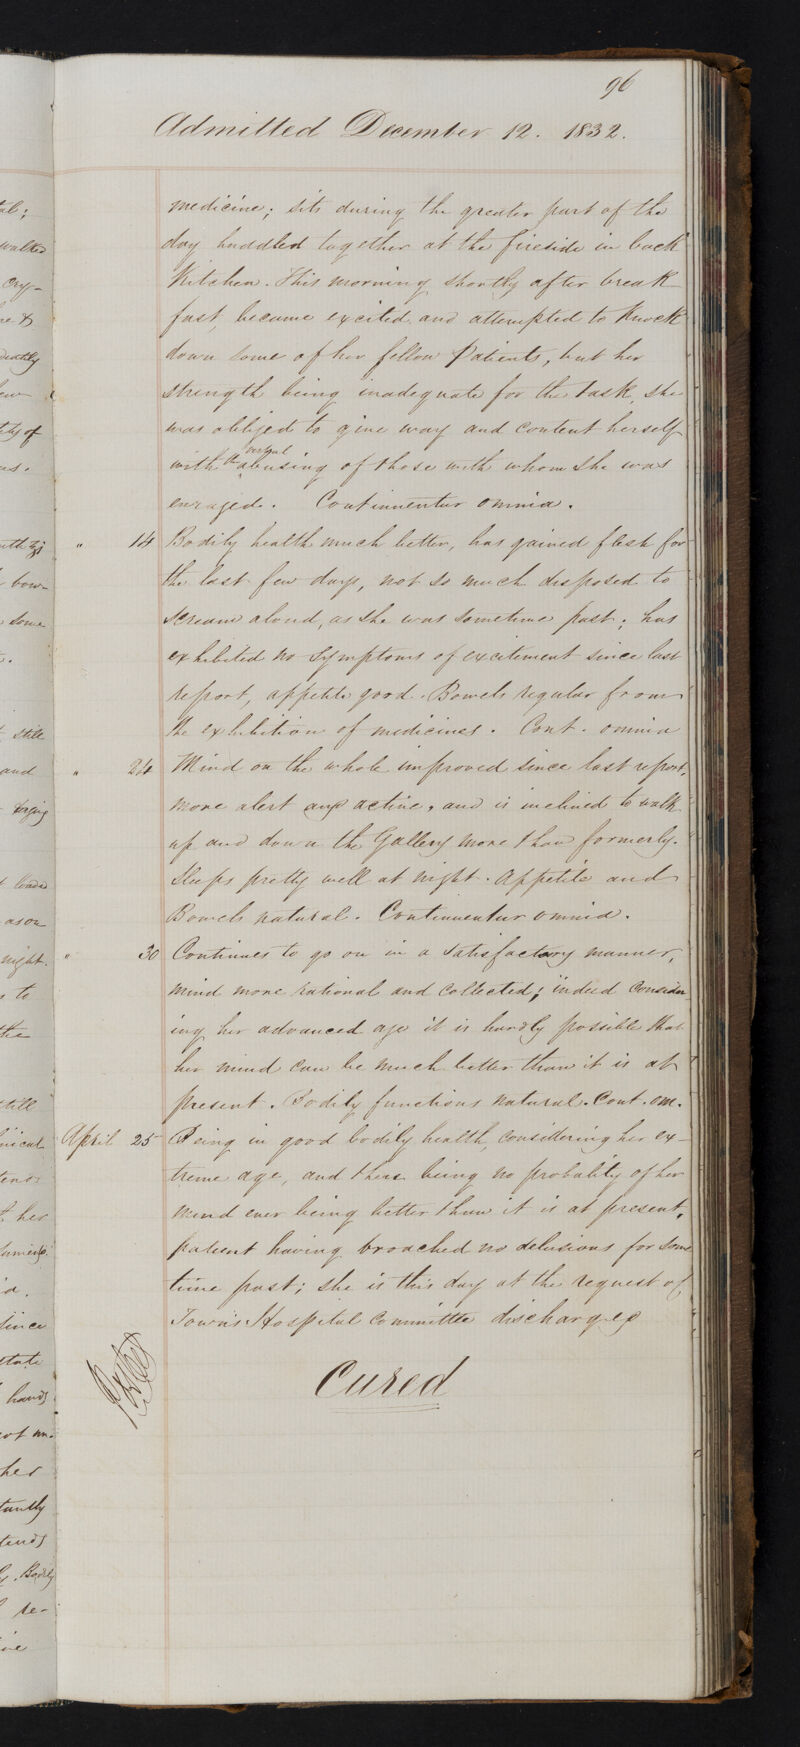 96
Admitted December 12. 1832.
medicine; sits during the greater part of the
day huddled together at the fireside in back
Kitchen. This morning shortly after break
fast, became excited and attempted to knock
down some of her fellow Patients, but her
strength being inadequate for the task, she
was obliged to give way and content herself
with the verbal abusing of those with whom she was
enraged. Continuentur omnia.
" 14 Bodily health much better, has gained flesh for
the last few days, not so much disposed to
scream aloud, as she was sometime past; has
exhibited no symptoms of excitement since last
report, appetite good. Bowels regular from
the exhibition of medicines. Cont. omnia
" 24 Mind on the whole improved since last report,
more alert and active, and is inclined to walk
up and down the Gallery more than formerly.
Sleeps pretty well at night. Appetite and
Bowels natural. Continuentur omnia.
" 30 Continues to go on in a satisfactory manner,
mind more rational and collected; indeed consider
ing her advanced age it is hardly possible that
her mind can be much better than it is at
present. Bodily functions natural. Cont. om.
April 25 Being in good bodily health, considering her ex-
treme age, and there being no probality of her
mind ever being better than it is at present,
patient having broached no delusions for some
time past; she is this day at the request of
Town's Hospital Committee discharged
Cured